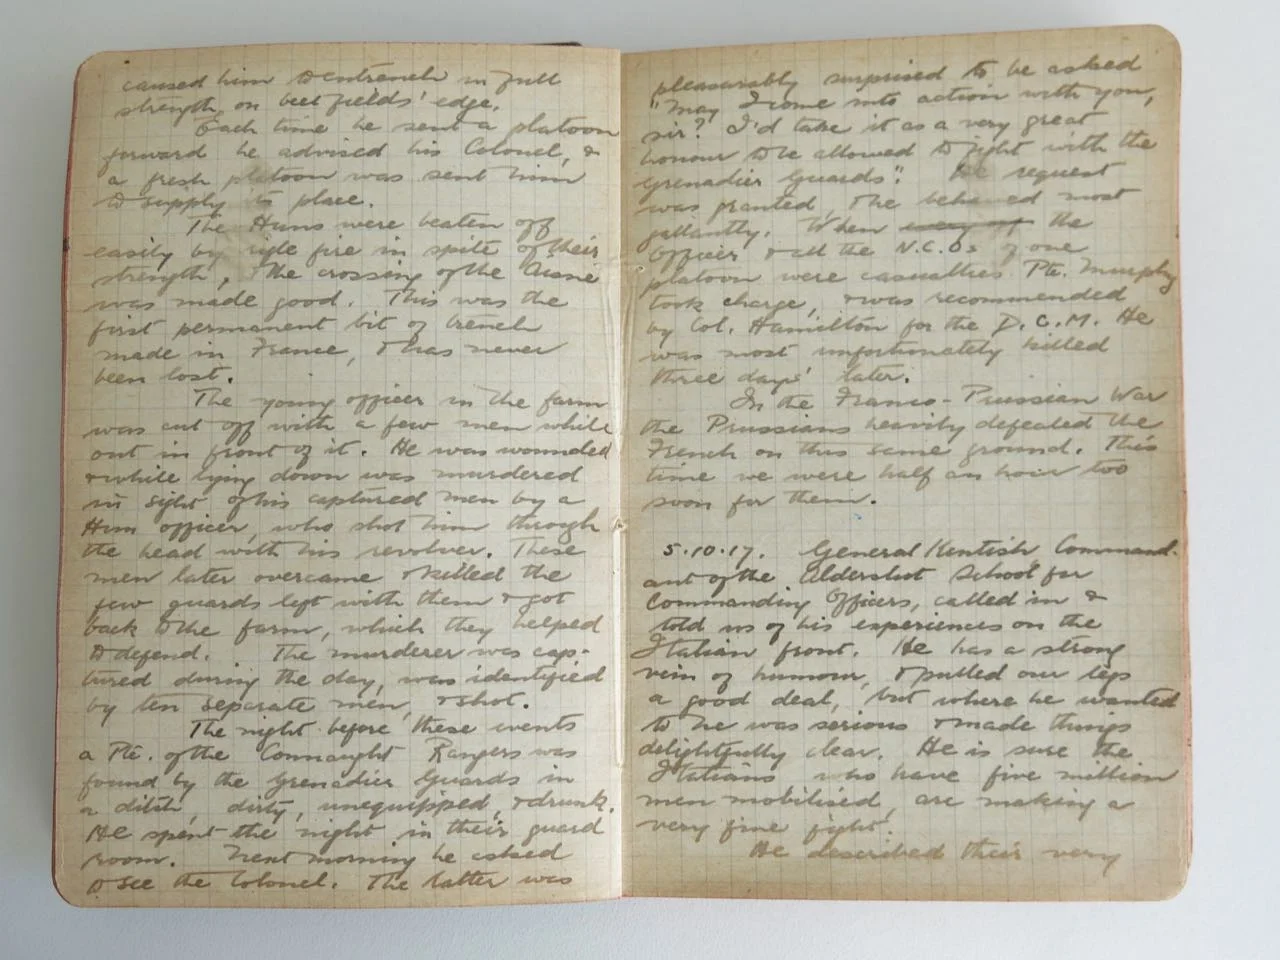 caused him to entrench in full
strength on beetfields' edge.
Each time he sent a platoon
forward he advised his Colonel, &
a fresh platoon was sent him
to supply its place.
The Huns were beaten off
easily by rifle fire in spite of their
strength, & the crossing of the Aisne
was made good. This was the
first permanent bit of trench
made in France, & has never
been lost.
The young officer in the farm
was cut off with a few men while
out in front of it. He was wounded
& while lying down was murdered
in sight of his captured men by a
Hun officer, who shot him through
the head with his revolver. These
men later overcame & killed the
few guards left with them & got
back to the farm, which they helped
to defend. The murderer was cap-
tured during the day, was identified
by ten separate men, & shot.
The night before these events
a Pte. of the Connaught Rangers was
found by the Grenadier Guards in
a ditch, dirty, unequipped, & drunk.
He spent the night in their guard
room. Next morning he asked
to see the Colonel. The latter was
pleasurably surprised to be asked
"May I come into action with you,
sir? I'd take it as a very great
honour to be allowed to fight with the
Grenadier Guards". He request
was granted, & he behaved most
gallantly. When the
Officer & all the N.C.Os of one
platoon were casualties Pte. Murphy
took charge, & was recommended
by Col. Hamilton for the D.C.M. He
was most unfortunately killed
three days' later.
In the Franco-Prussian War
the Prussians heavily defeated the
French on this same ground. This
time we were half an hour too
soon for them.
5.10.17. General Kentish Command-
ant of the Aldershot School for
Commanding Officers, called in &
told us of his experiences on the
Italian front. He has a strong
vein of humour, & pulled our legs
a good deal, but where he wanted
to he was serious & made things
delightfully clear. He is sure the
Italians who have five million
men mobilised, are making a
very fine fight.
He described their very